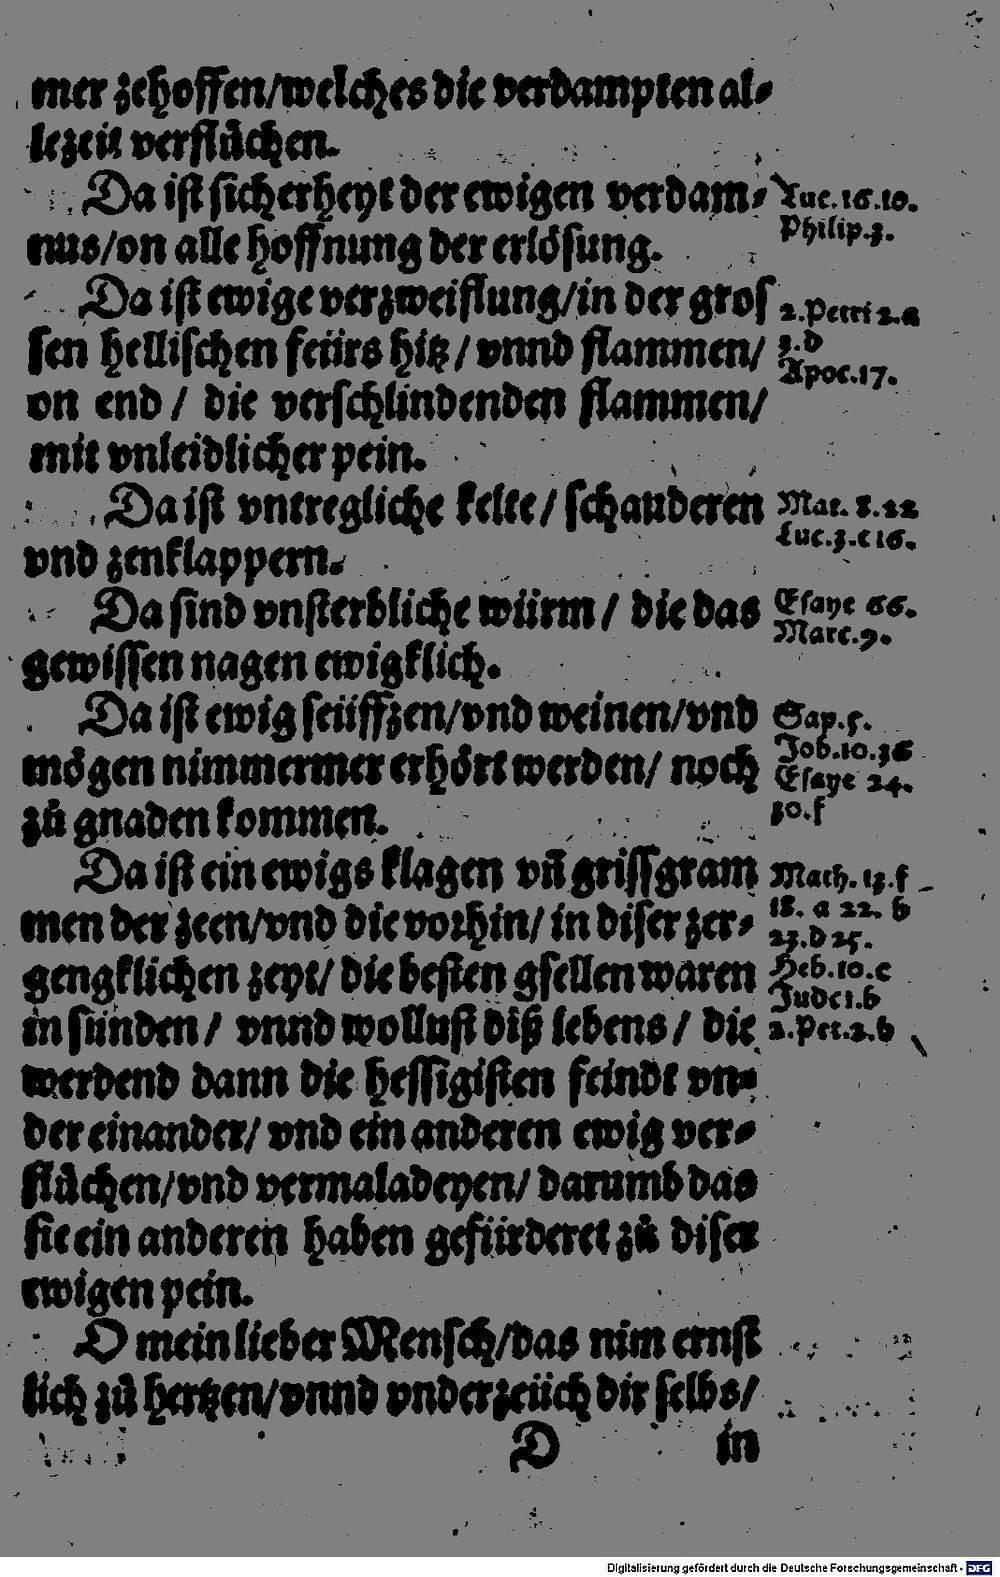 mer zehoffen/welches die verdampten al⸗
lezeit verflůchen.
Da ist sicherheyt der ewigen verdam⸗
nus/on alle hoffnung der erlösung.
Luc. 16.10.
Philip.3.
Da ist ewige verzweiflung/in der gros
sen hellischen feürs hitz / vnnd flammen/
on end / die verschlindenden flammen/
mit vnleidlicher pein.
2.Petri 2.a
3.d
Apoc.17.
Da ist vntregliche kelte / schauderen
vnd zenklappern.
Mat. 8.22
Luc.3.c 16.
Da sind vnsterbliche würm / die das
gewissen nagen ewigklich.
Esaye 66.
Marc.9.
Da ist ewig seüffzen/vnd weinen/vnd
mögen nimmermer erhört werden/ noch
zů gnaden kommen.
Sap.5.
Job.10.36
Esaye 24.
30.f
Da ist ein ewigs klagen vñ grissgram
men der zeen/vnd die vorhin/ in diser zer⸗
gengklichen zeyt/ die besten gsellen waren
in sünden / vnnd wollust diß lebens / die
werdend dann die hessigisten feindt vn⸗
der einander/ vnd ein anderen ewig ver⸗
flůchen/vnd vermaladeyen/ darumb das
sie ein anderen haben gefürderet zů diser
ewigen pein.
Math. 13.f
18. a 22. b
23.d 25.
Heb.10.c
Jude 1.b
2.Pet.2.b
O mein lieber Mensch/das nim ernst
lich zů hertzen/vnnd vnderzeüch dir selbs/
D in
Digitalisierung gefördert durch die Deutsche Forschungsgemeinschaft - DFG